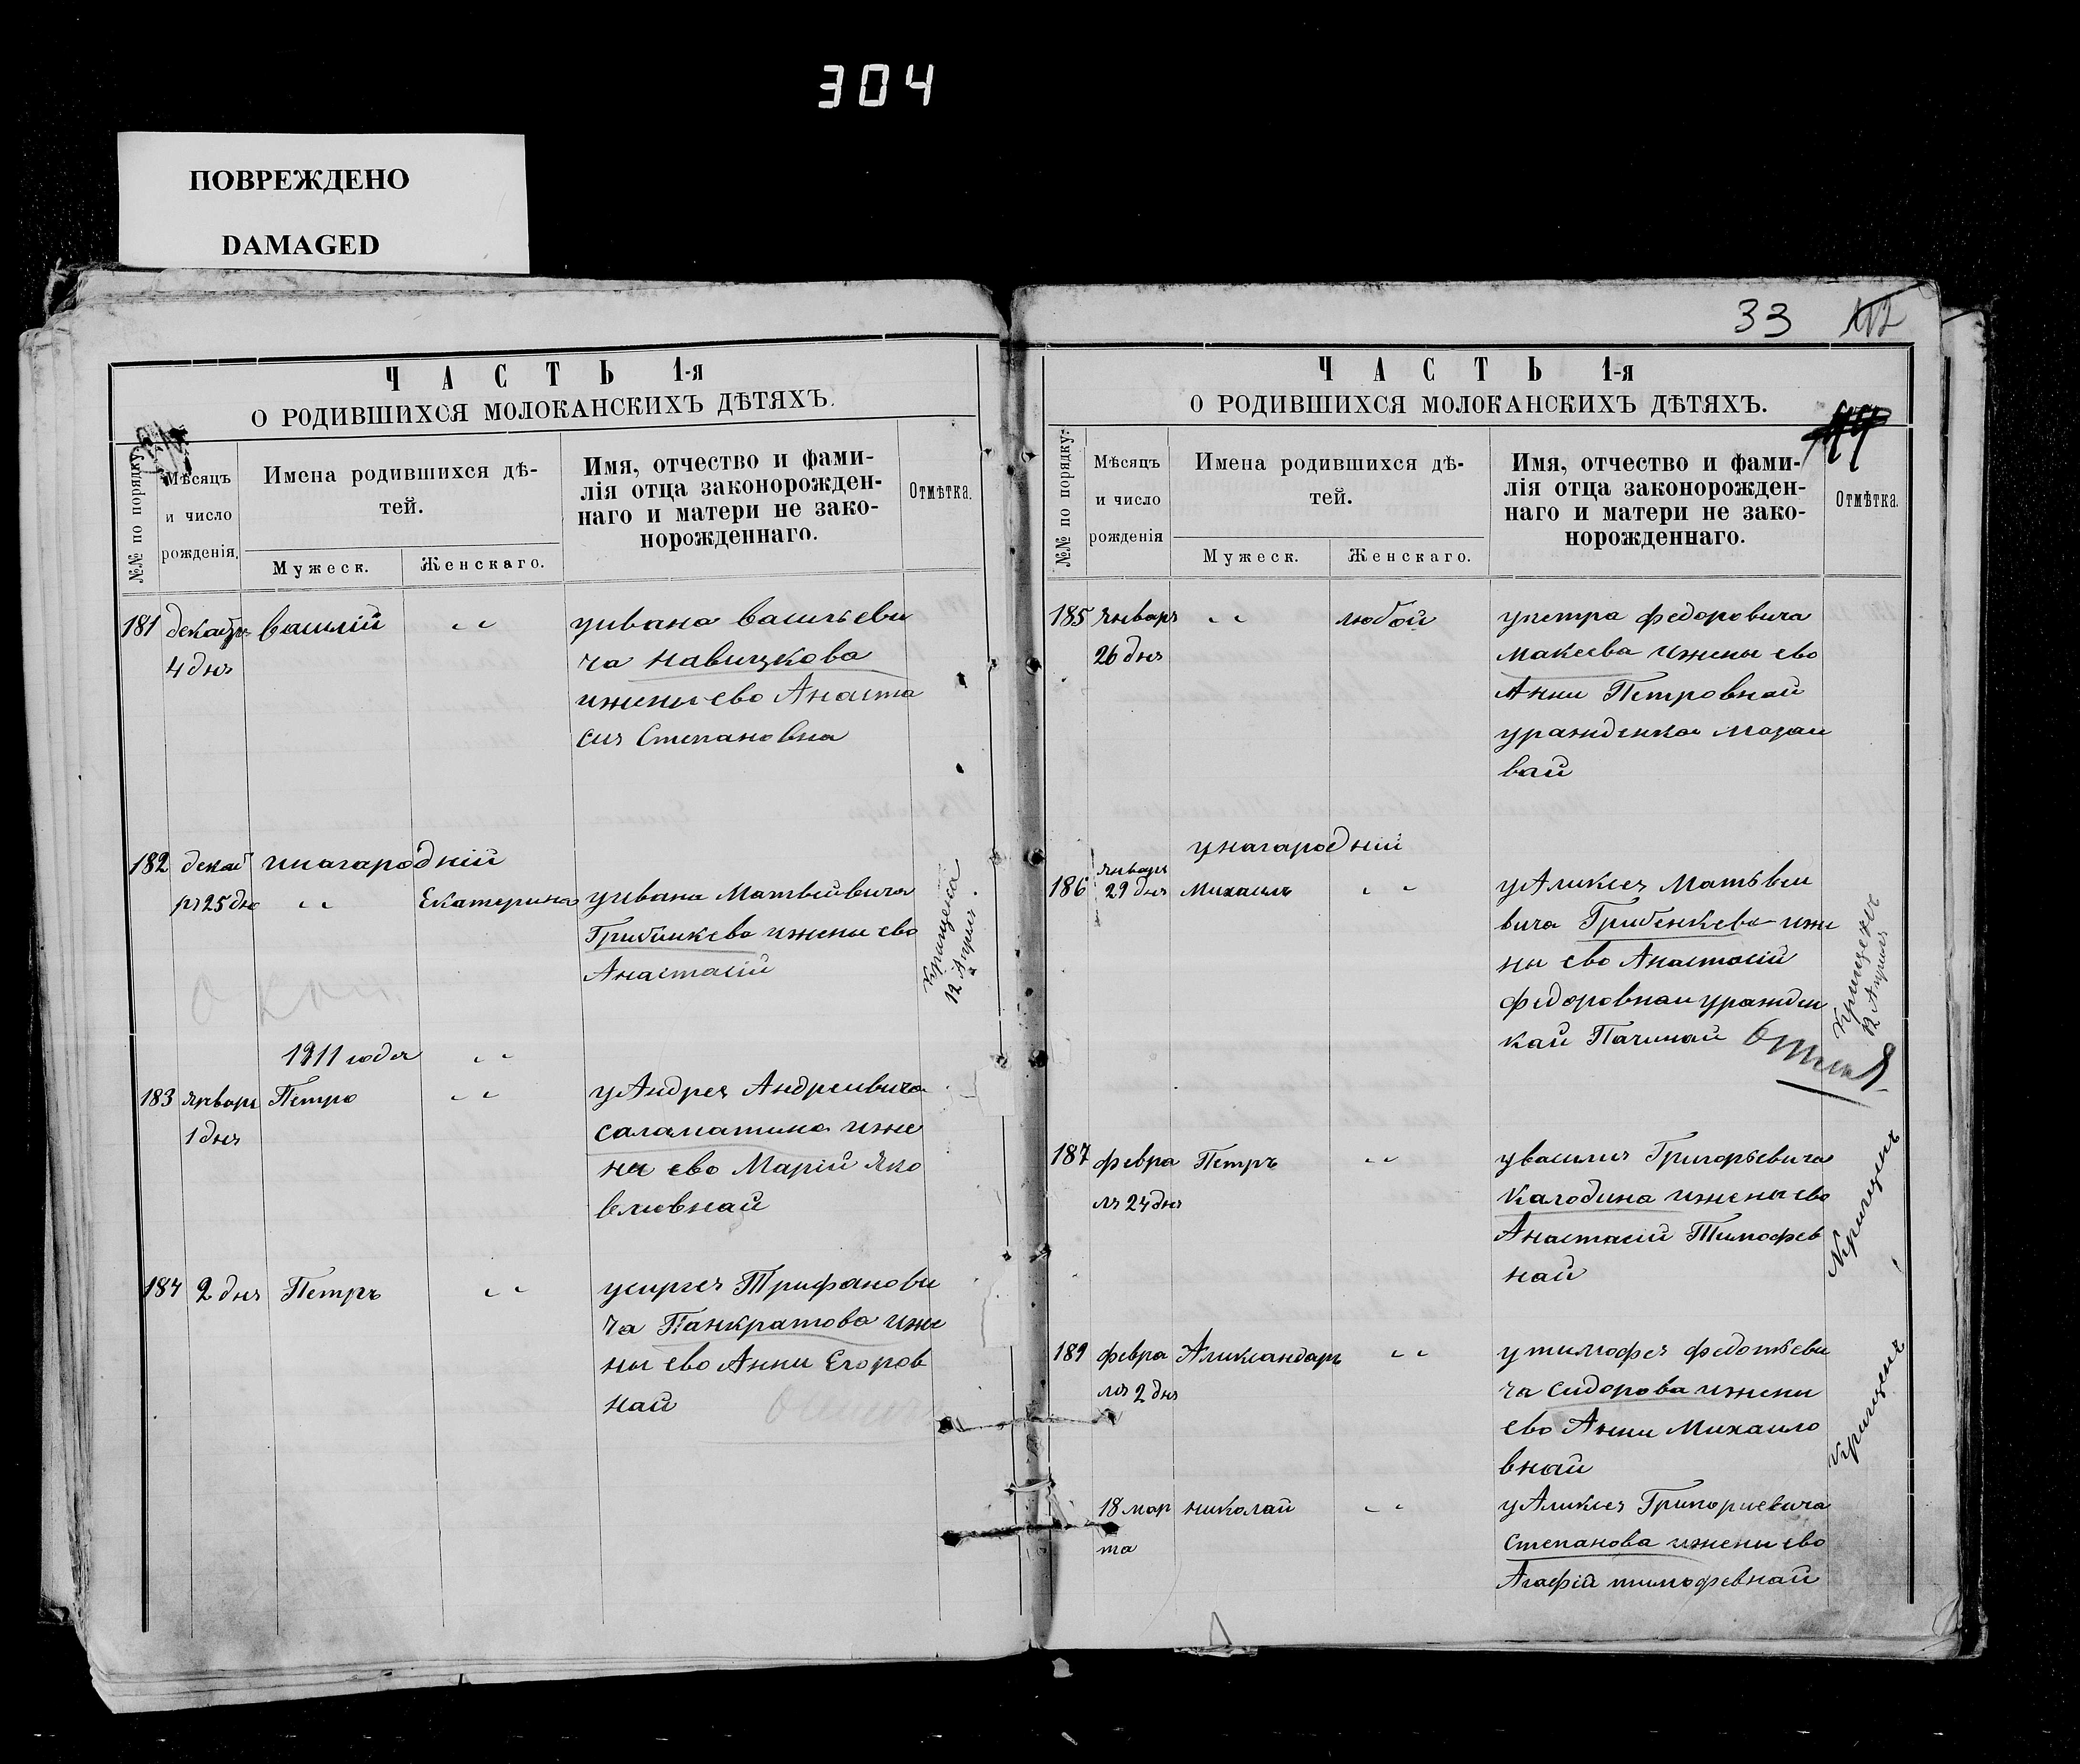 304
ПОВРЕЖДЕНО
DAMAGED
ЧАСТЬ 1-я
О РОДИВШИХСЯ МОЛОКАНСКИХЪ ДѢТЯХЪ.
№№ по порядку
Мѣсяцъ и число рожденія.
Имена родившихся дѣ-
тей.
Мужеск.
Женскаго.
Имя, отчество и фами-
лія отца законорожден-
наго и матери не зако-
норожденнаго.
Отмѣтка.
181 декабря василій " уивана васильеви
4 дня ча навицкова
ижены ево Анаста
сия Степановна
182 декаб инагародній
ря 25 дня " Екатерина уивана Матвѣйвича
Грибинкева ижены ево
Анастасій
Крищена
12 Апреля
1911 года "
183 январь Петро " уАндрея Андреивича
1 дня саламатина иже
на ево Марій Яко
велювнай
184 2 дня Петръ " усиргея Трифанови
ча Панкратова иже
ны ево Анни Егоров
най
33
ЧАСТЬ 1-я
О РОДИВШИХСЯ МОЛОКАНСКИХЪ ДѢТЯХЪ.
№№ по порядку
Мѣсяцъ и число рожденія
Имена родившихся дѣ-
тей.
Мужеск.
Женскаго.
Имя, отчество и фами-
лія отца законорожден-
наго и матери не зако-
норожденнаго.
Отмѣтка.
185 январь " любой упетра федоровича
26 дня макеева ижены ево
Анни Петровнай
уражденкаи
вай
унагародній
186 январь 29 дня Михаилъ " уАликсея Матьвеи
вича Грибенкева иже
ны ево Анастасій
федоровнаи уражден
кай Пачинай
Крищенъ
12 Апреля
187 февра Петръ " увасилия Григорьевича
ля 24 дня Калодина ижены ево
Анастасій Тимофев
най
Крищенъ
189 февра Аликсандаръ " утимофея федотьеви
ля 2 дня ча сидорова ижены
ево Анни Михаило
внай
Крищенъ
18 мар николай " уАликсея Григориевича
та степанова ижены ево
Агафій тимофевнай